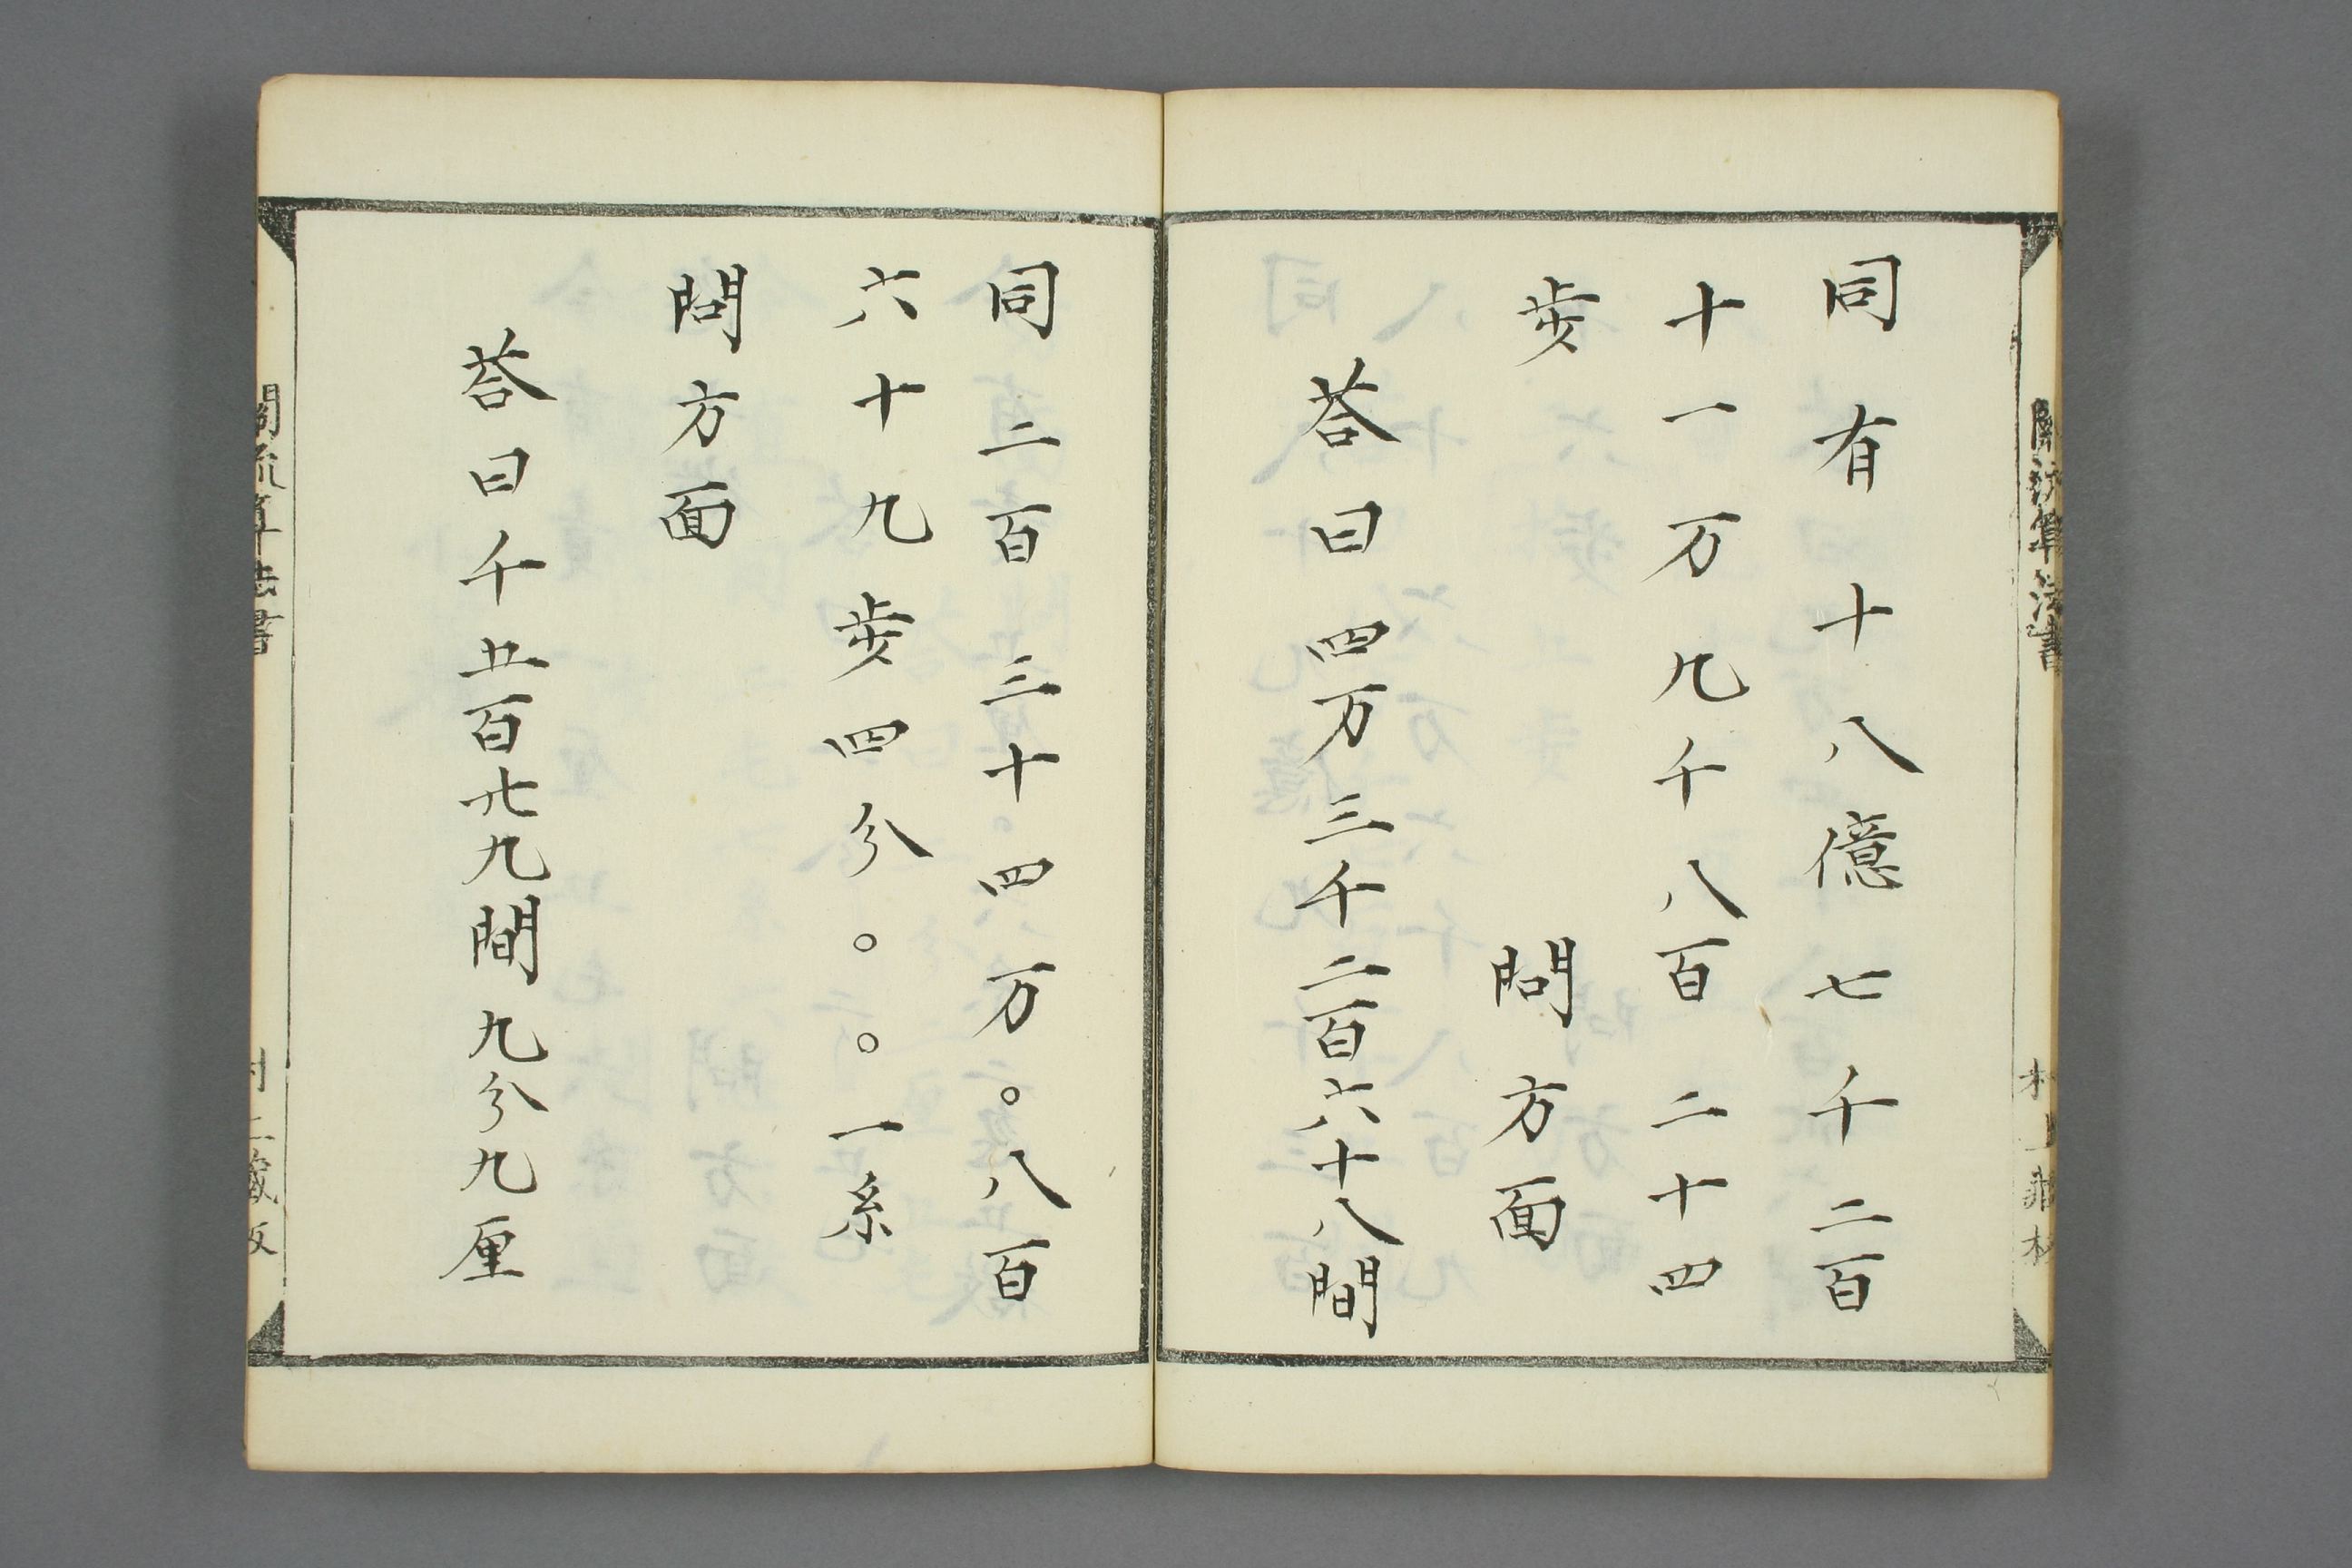 關流算法書
同有十八億七千二百
十一万九千八百二十四
歩　問方面
荅曰四万三千二百六十八間
同二百三十四万〇八百
六十九歩四分〇〇一糸
問方面
荅曰千五百廿九間九分九厘
關流算法書